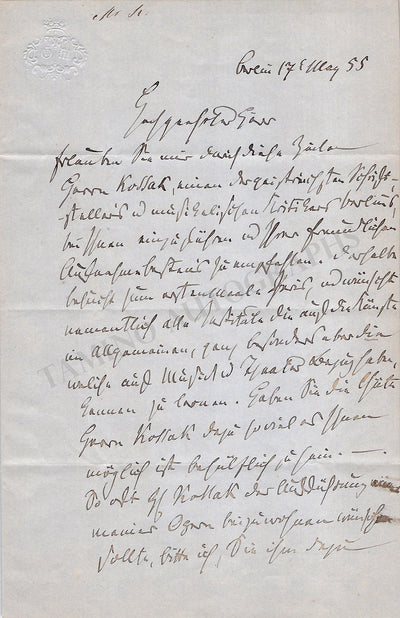 Berlin 17t May 55
Hochgeehrter Herr
Erlauben Sie mir durch diese Zeilen
Herrn Kossak, einen der geistreichsten Schrift-
-stellers u musikalischen Kritikers Berlins,
bei Ihnen einzuführen u Ihrer freundlichen
Aufnahme bestens zu empfehlen. Derselbe
besucht zum ersten Male Paris, und wünscht
namentlich alle Institute die auf die Künste
im Allgemeinen, ganz besonders aber die
welche auf Musik u Theater Bezug haben,
kennen zu lernen. Haben Sie die Güte
Herrn Kossak dazu soviel es Ihnen
möglich ist behülflich zu sein. —
So oft H Kossak der Aufführung einer
meiner Opern beizuwohnen wünschen
sollte, bitte ich, Sie ihm dazu
TAMINO AUTOGRAPHS